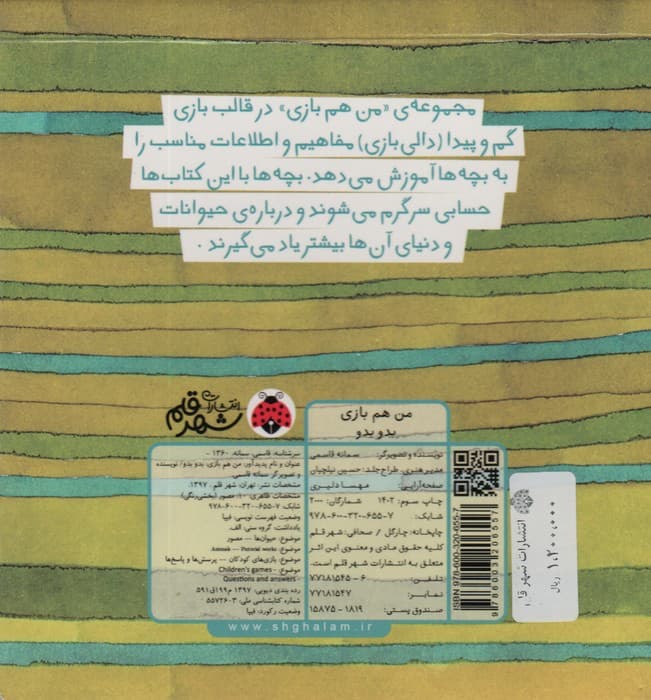 مجموعه‌ی «من هم بازی» در قالب بازی
گم و پیدا (دالی بازی) مفاهیم و اطلاعات مناسب را
به بچه‌ها آموزش می‌دهد. بچه‌ها با این کتاب‌ها
حسابی سرگرم می‌شوند و درباره‌ی حیوانات
و دنیای آن‌ها بیشتر یاد می‌گیرند.
انتشارات
شهر قلم
من هم بازی
بدو بدو
نویسنده و تصویرگر: سمانه قاسمی
مدیر هنری، طراح جلد: حسین نیلچیان
صفحه‌آرایی: مهسا دلیری
چاپ سوم: ۱۴۰۲ شمارگان: ۲۰۰۰
شابک: ۹۷۸-۶۰۰-۳۲۰-۶۵۵-۷
چاپخانه: چارگل / صحافی: شهر قلم
کلیه حقوق مادی و معنوی این اثر
متعلق به انتشارات شهر قلم است.
تلفن: ۶ - ۷۷۱۸۱۵۴۵
نمابر: ۷۷۱۸۱۵۴۷
صندوق پستی: ۱۸۱۹ - ۱۵۸۷۵
سرشناسه: قاسمی، سمانه، ۱۳۶۰ -
عنوان و نام پدیدآور: من هم بازی: بدو بدو/ نویسنده
و تصویرگر سمانه قاسمی.
مشخصات نشر: تهران: شهر قلم، ۱۳۹۷.
مشخصات ظاهری: ۱۰ص: مصور (بخشی رنگی)
شابک: ۹۷۸-۶۰۰-۳۲۰-۶۵۵-۷
وضعیت فهرست نویسی: فیپا
یادداشت: گروه سنی: الف.
موضوع: حیوان‌ها -- مصور
موضوع: Animals -- Pictorial works
موضوع: بازی‌های کودکان -- پرسش‌ها و پاسخ‌ها
موضوع: Children's games --
Questions and answers
رده بندی دیویی: ۱۳۹۷ م۱۹۹ق ۵۹۱
شماره کتابشناسی ملی: ۵۵۷۲۶۰۳
وضعیت رکورد: فیپا
ISBN: 978-600-320-655-7
9786003206557
انتشارات شهر قلم
۱،۲۰۰،۰۰۰ ریال
www.shghalam.ir